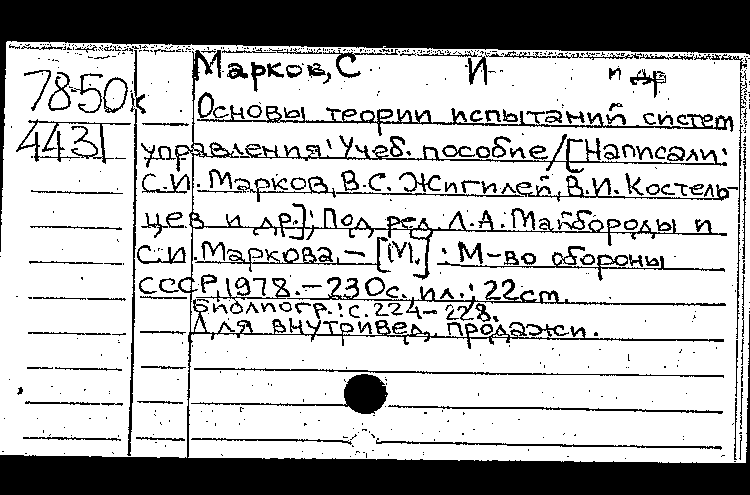 Марков, С И и др
78-50к
4431
Основы теории испытаний систем
управления: Учеб. пособие/[Написали:
С.И. Марков, В.С. Жигилей, В.И. Костель-
цев и др.]; Под ред. Л.А. Майбороды и
С.И. Маркова. – [М.] : М-во обороны
СССР, 1978. – 230с., ил.; 22cm.
Библиогр.: с. 224-228.
Для внутривед. продажи.